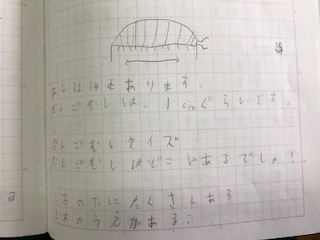 あしは14本あります。
だんごむしは、1cmぐらいです。
だんごむしクイズ
だんごむしはどこにあるでしょ?
1 石のたにたくさんある
1 木のうえがある?